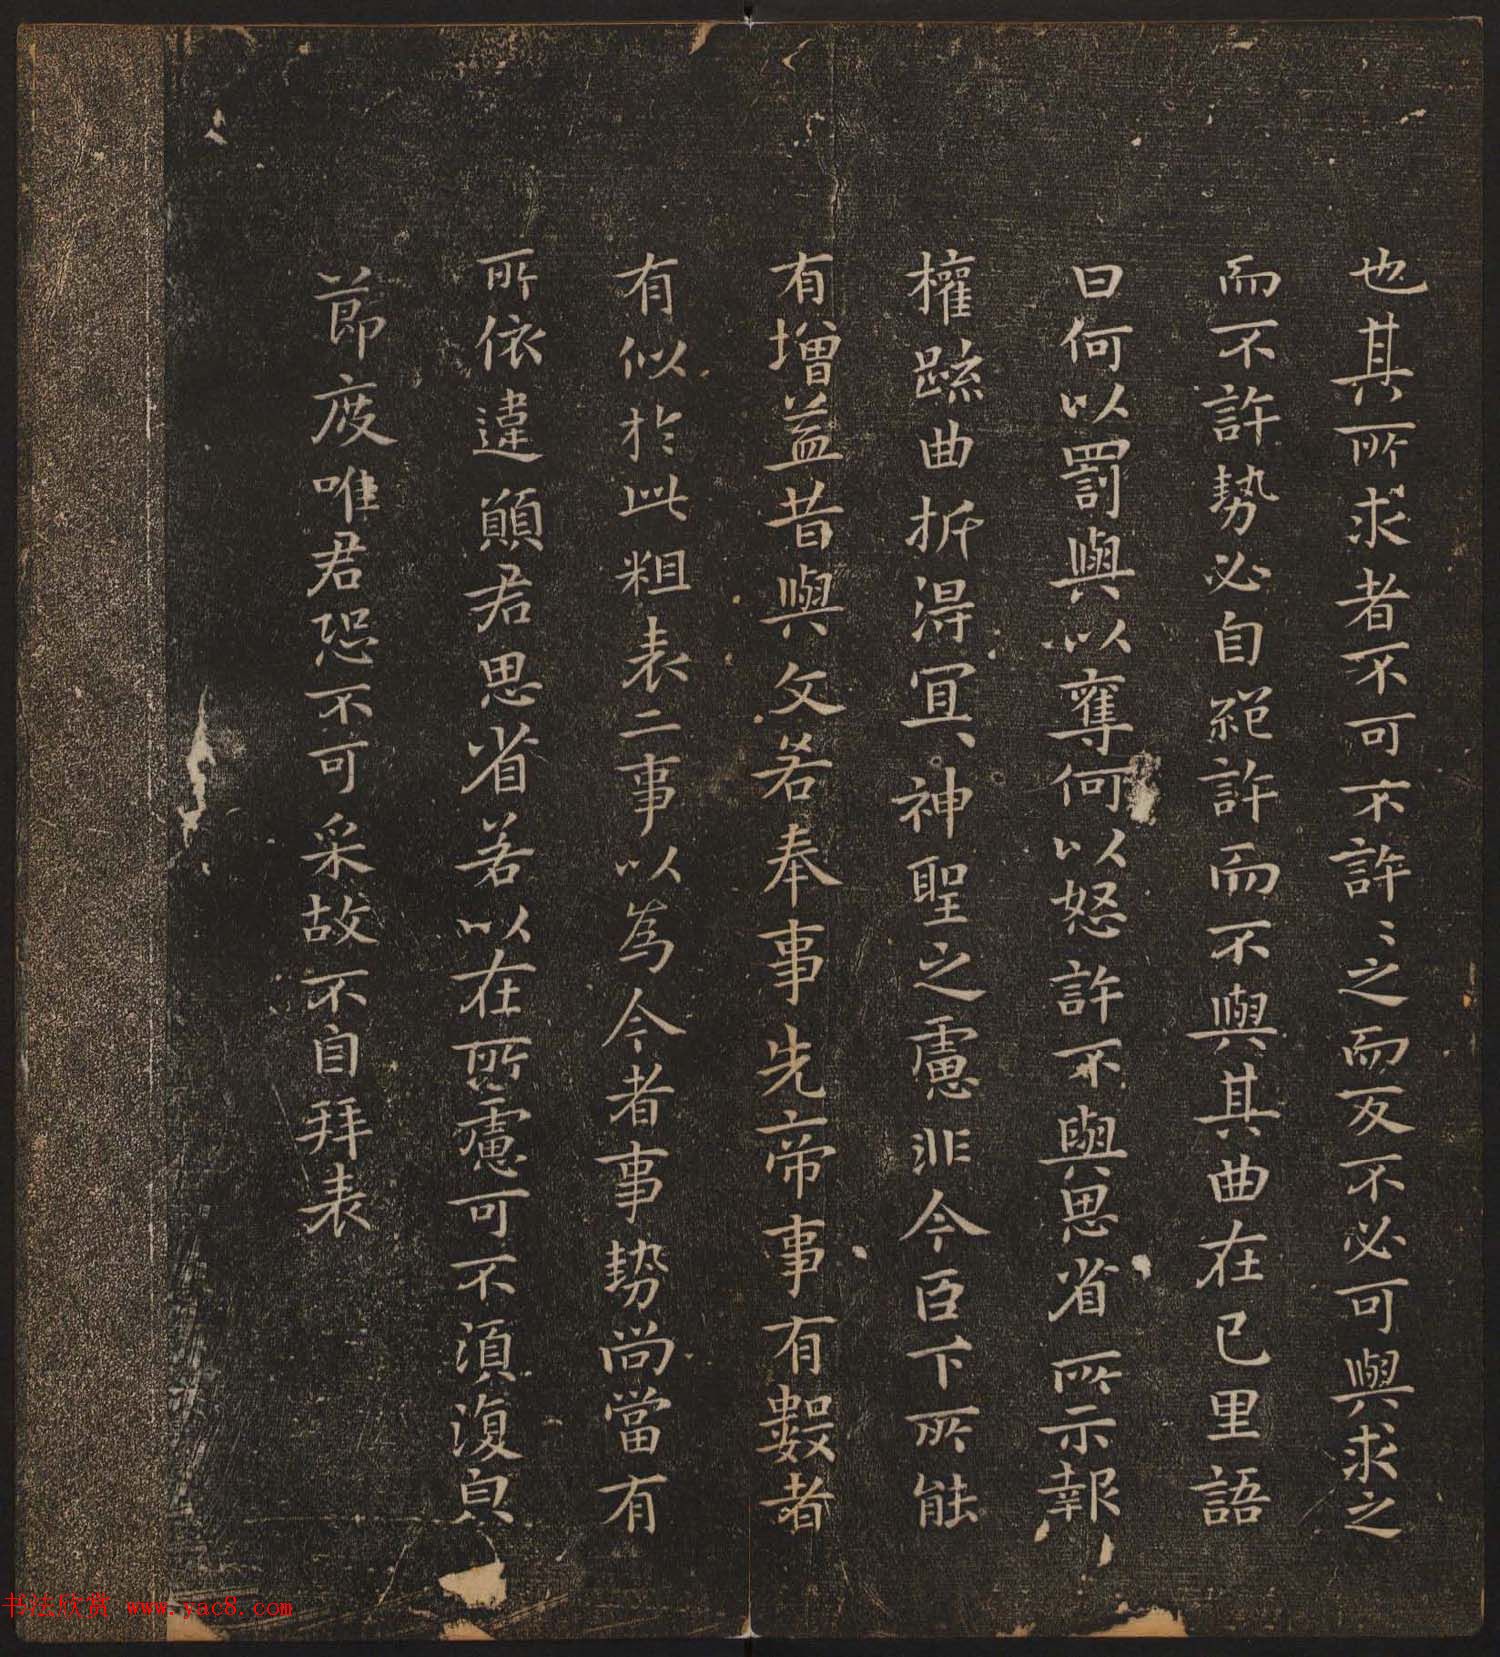 也其所求者不可不許〻之而反不必可與求之
而不許勢必自絕許而不與其曲在己里語
曰何以罰與以奪何以怒許不與思省所示報
權疏曲折得宜神聖之慮非今臣下所能
有增益昔與文若奉事先帝事有數者
有似於此粗表二事以為今者事勢尚當有
所依違願君思省若以在所慮可不須復自
節度唯君恐不可采故不自拜表
书法欣赏 www.yac8.com